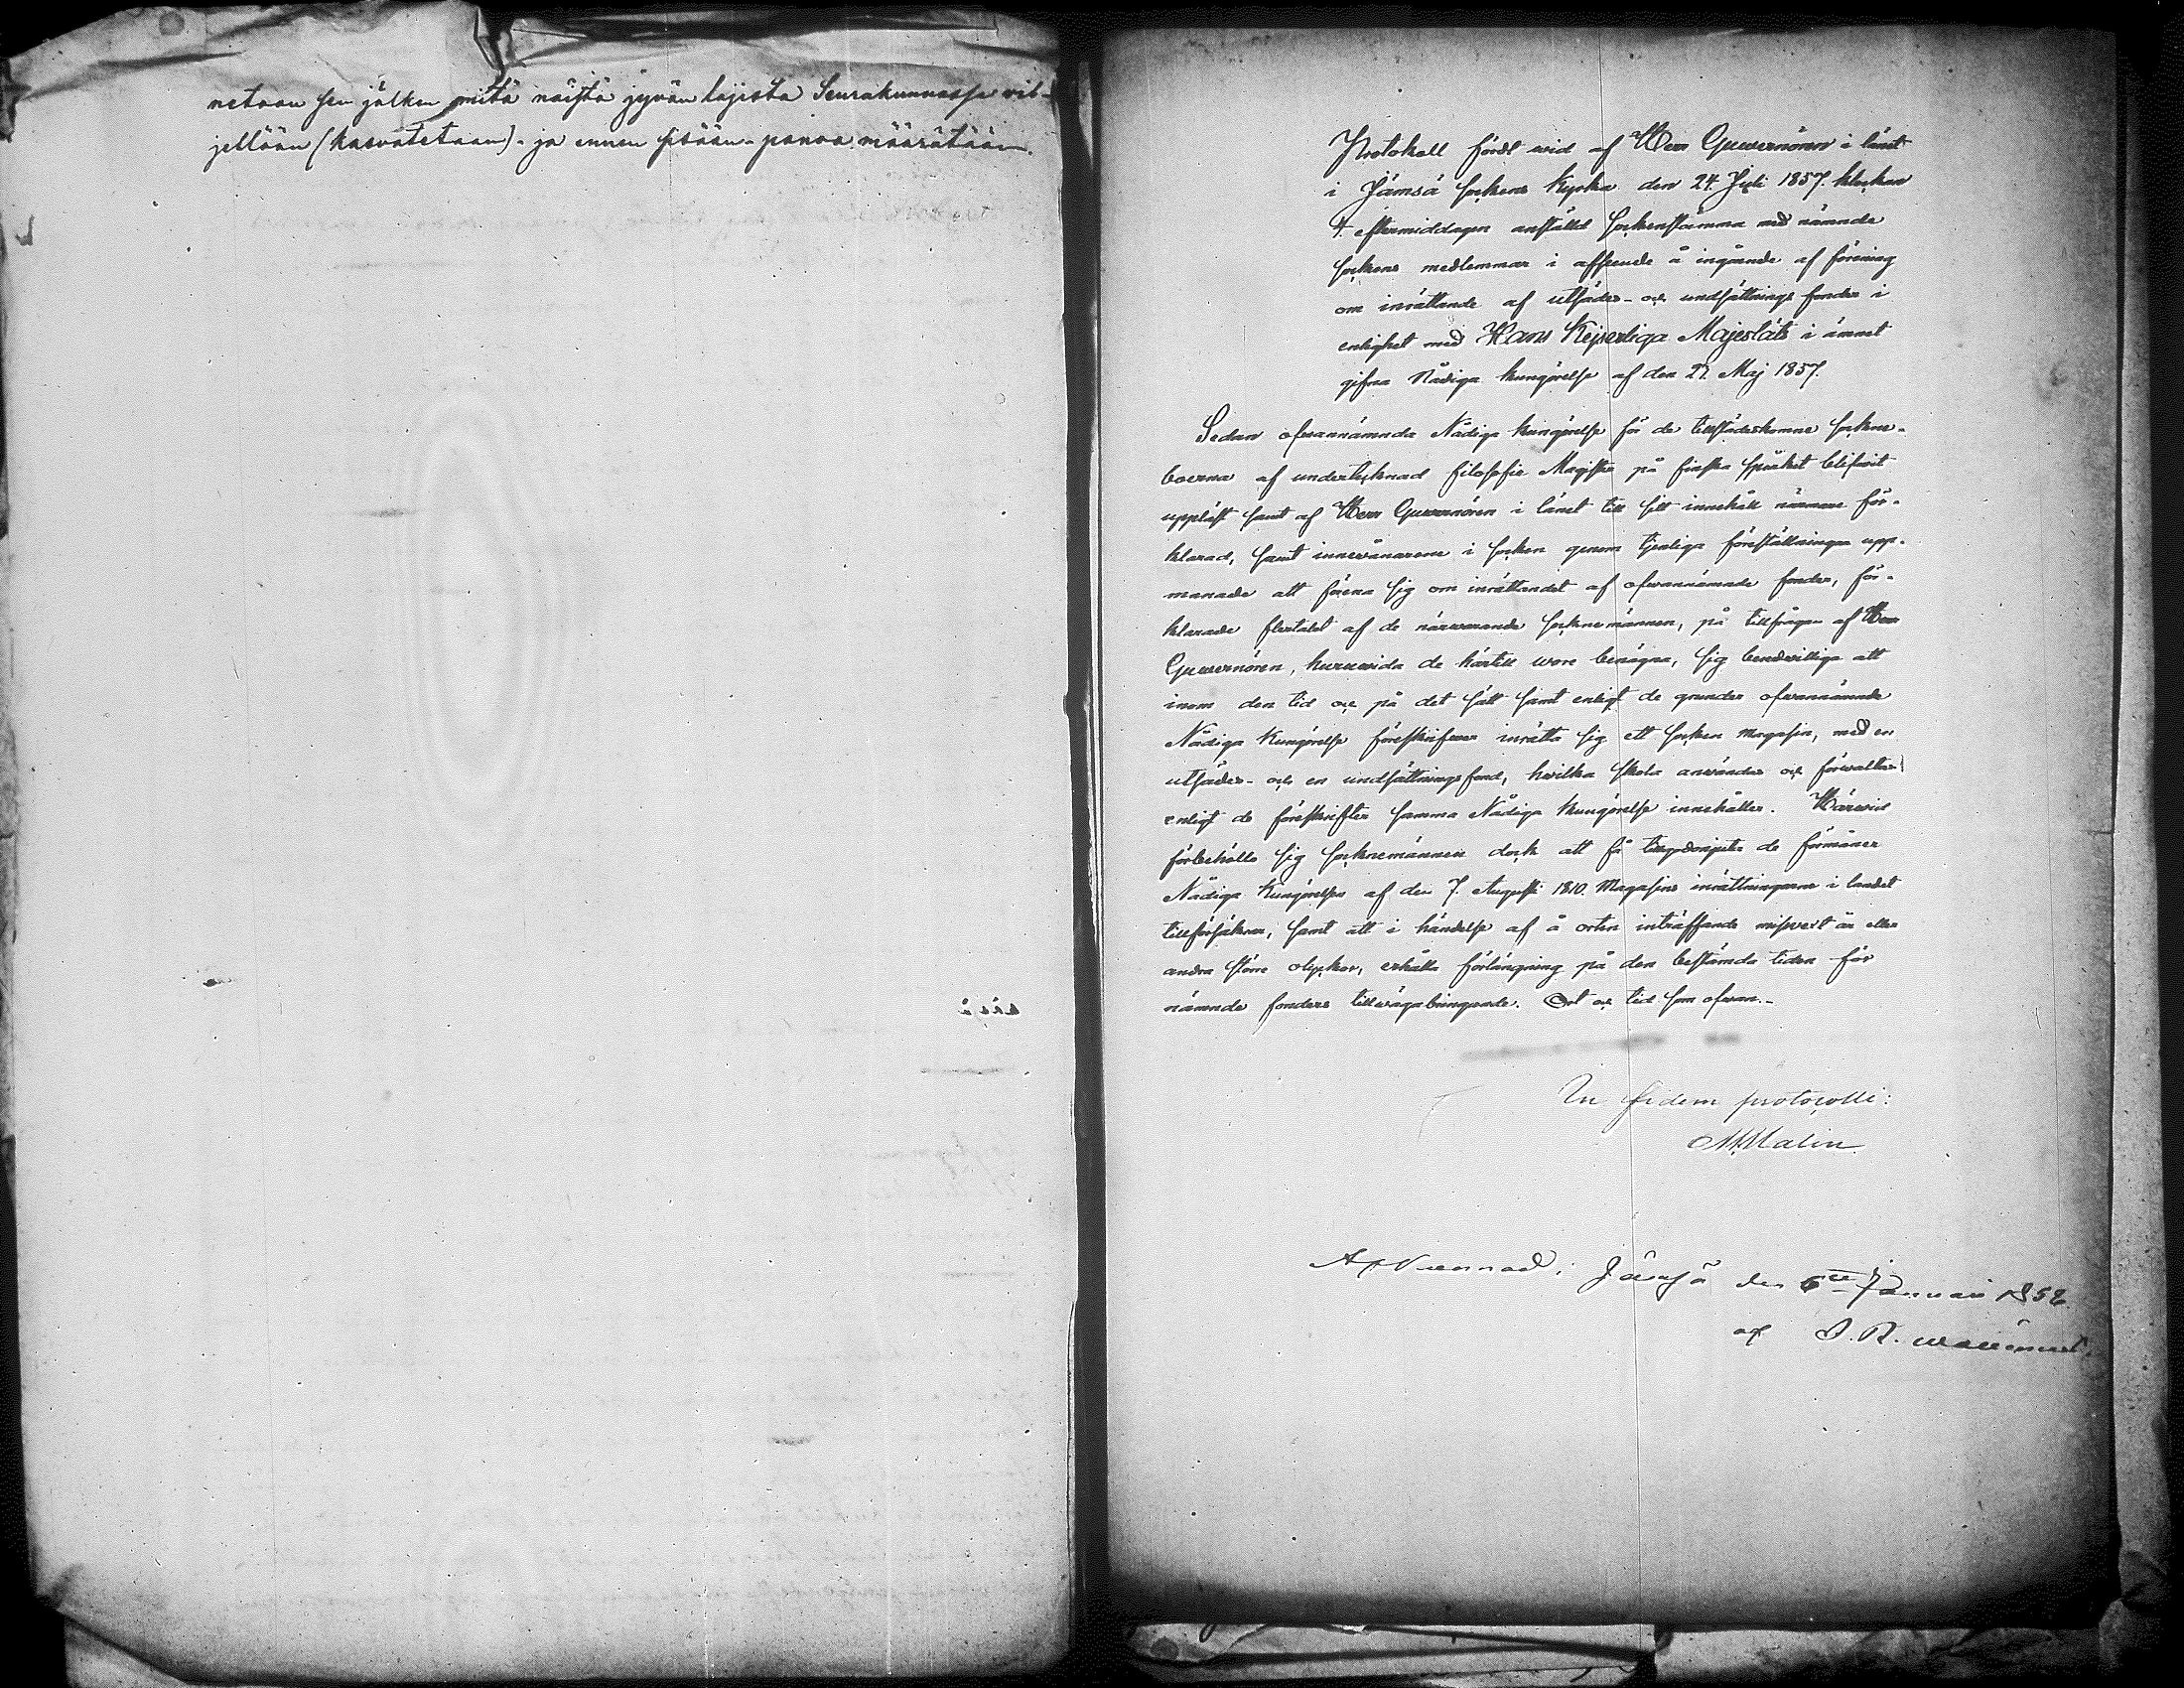 netaan sen jälken mitä näistä jyvän lajista Seurakunnassa vil-
jellään (kasvatetaan) - ja ennen sisään-panoa määrätään.
Protokoll fördt wid af Herr Guvernören i länet
i Jämsä sockens kyrka den 24 Juli 1857. klockan
4. eftermiddagen anställd sockenstämma med nämnde
sockens medlemmar i afseende å ingående af förening
om inrättande af utsädes- och undsättnings fonder i
enlighet med Hans Kejserliga Majestäts i ämnet
gifna Nådiga kungörelse af den 27. Maj 1857.
Sedan ofvannämnda Nådiga kungörelse för de tillstädeskomne sockne-
boerna af undertecknad filosofie Magister på finska språket blifwit
uppläst samt af Herr Guvernören i länet till sitt innehåll närmare för-
klarad, samt innevånarene i socken genom tjenliga föreställningar upp-
manade att förena sig om inrättandet af ofvannämnde fonder, för-
klarade flertalet af de närwarande socknemännen, på tillfrågan af Herr
Guvernören, huruwida de härtill wore benägna, sig benäwilliga att
inom den tid och på det sätt samt enligt de grunder ofvannämnde
Nådiga Kungörelse föreskrifwer inrätta sig ett socken magasin, med en
utsädes- och en undsättningsfond, hwilka skola användas och förwaltas
enligt de föreskrifter samma Nådiga Kungörelse innehåller. Härwid
förbehöllo sig socknemännen dock att få de förmåner
Nådiga Kungörelsen af den 7. Augusti 1810. Magasins inrättningarne i landet
tillförsäkrar, samt att i händelse af å orten inträffande missvext år eller
andra större olyckor, erhålla förlängning på den bestämda tiden för
nämnde fonders tillvägabringande. Ort och tid som ofvan.-
In fidem protocolli:
Malin
i Jämsä den 6te Januari 1858
af